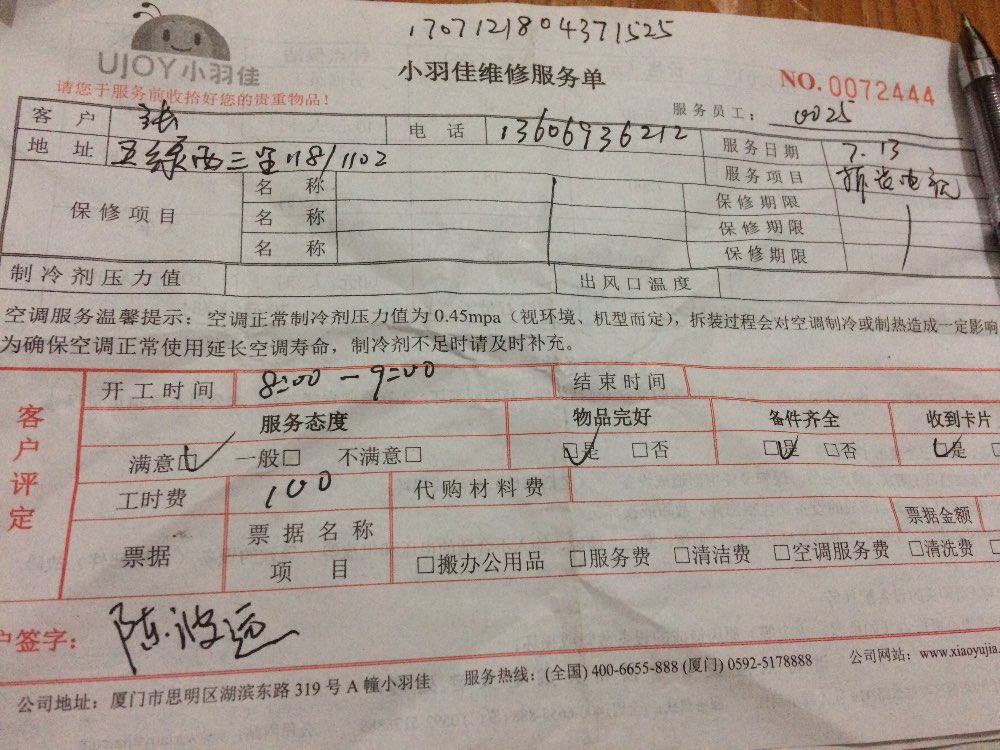 1707121804371525
UJOY小羽佳
小羽佳维修服务单
NO.0072444
请您于服务前收拾好您的贵重物品!
服务员工: 0025
客户 张 电话 13606936212 服务日期 7.13
地址 五缘西三里118/1102 服务项目 拆装电视
保修项目 名称 保修期限
名称 保修期限
名称 保修期限
制冷剂压力值 出风口温度
空调服务温馨提示:空调正常制冷剂压力值为0.45mpa(视环境、机型而定),拆装过程会对空调制冷或制热造成一定影响
为确保空调正常使用延长空调寿命,制冷剂不足时请及时补充。
客户评定
开工时间 8:00-9:00 结束时间
服务态度 物品完好 备件齐全 收到卡片
满意☑ 一般□ 不满意□ ☑是 □否 ☑是 □否 ☑是
工时费 100 代购材料费
票据 票据名称 票据金额
项目 □搬办公用品 □服务费 □清洁费 □空调服务费 □清洗费
户签字: 陈波运
公司地址:厦门市思明区湖滨东路319号A幢小羽佳 服务热线:(全国)400-6655-888(厦门)0592-5178888 公司网站:www.xiaoyujia.